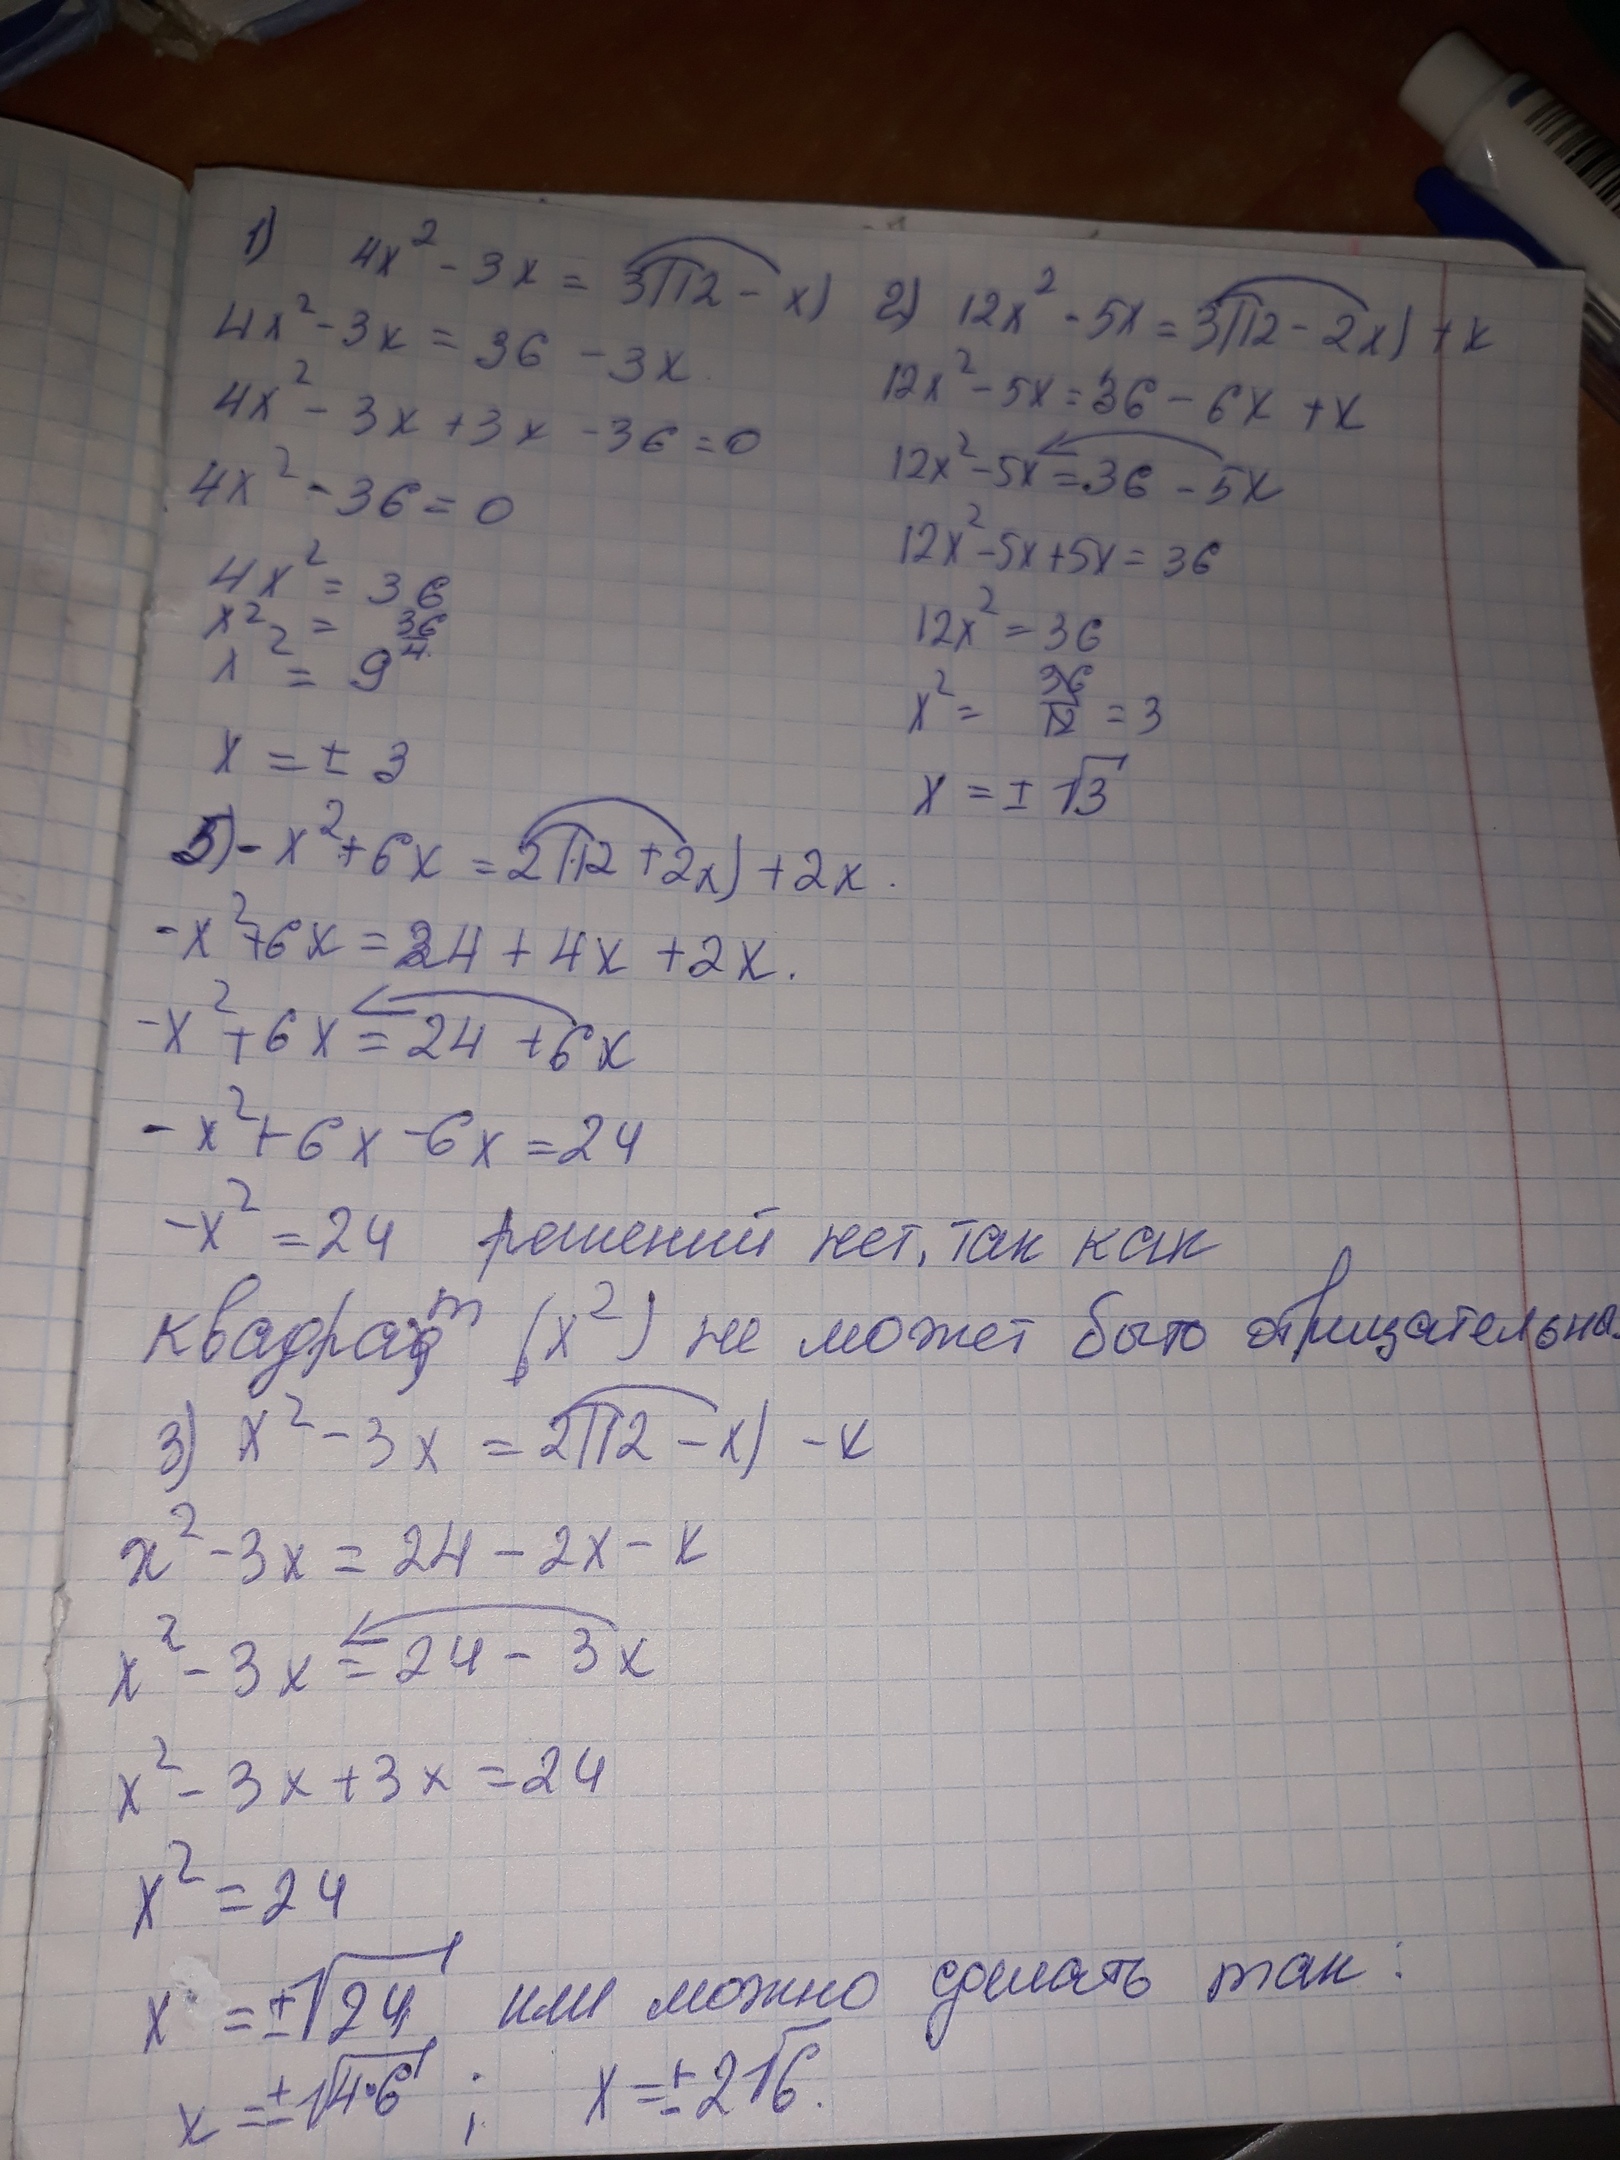 1) 4x² - 3x = 3(12 - x)
4x² - 3x = 36 - 3x
4x² - 3x + 3x - 36 = 0
4x² - 36 = 0
4x² = 36
x² = 36/4
x² = 9
x = ± 3
2) 12x² - 5x = 3(12 - 2x) + x
12x² - 5x = 36 - 6x + x
12x² - 5x = 36 - 5x
12x² - 5x + 5x = 36
12x² = 36
x² = 36/12 = 3
x = ± √3
5) - x² + 6x = 2(12 + 2x) + 2x.
-x² + 6x = 24 + 4x + 2x.
-x² + 6x = 24 + 6x
-x² + 6x - 6x = 24
-x² = 24 решений нет, так как
квадрат (x²) не может быть отрицательны
3) x² - 3x = 2(12 - x) - x
x² - 3x = 24 - 2x - x
x² - 3x = 24 - 3x
x² - 3x + 3x = 24
x² = 24
x = ±√24 или можно сделать так:
x = ±√4·6 ; x = ± 2√6.